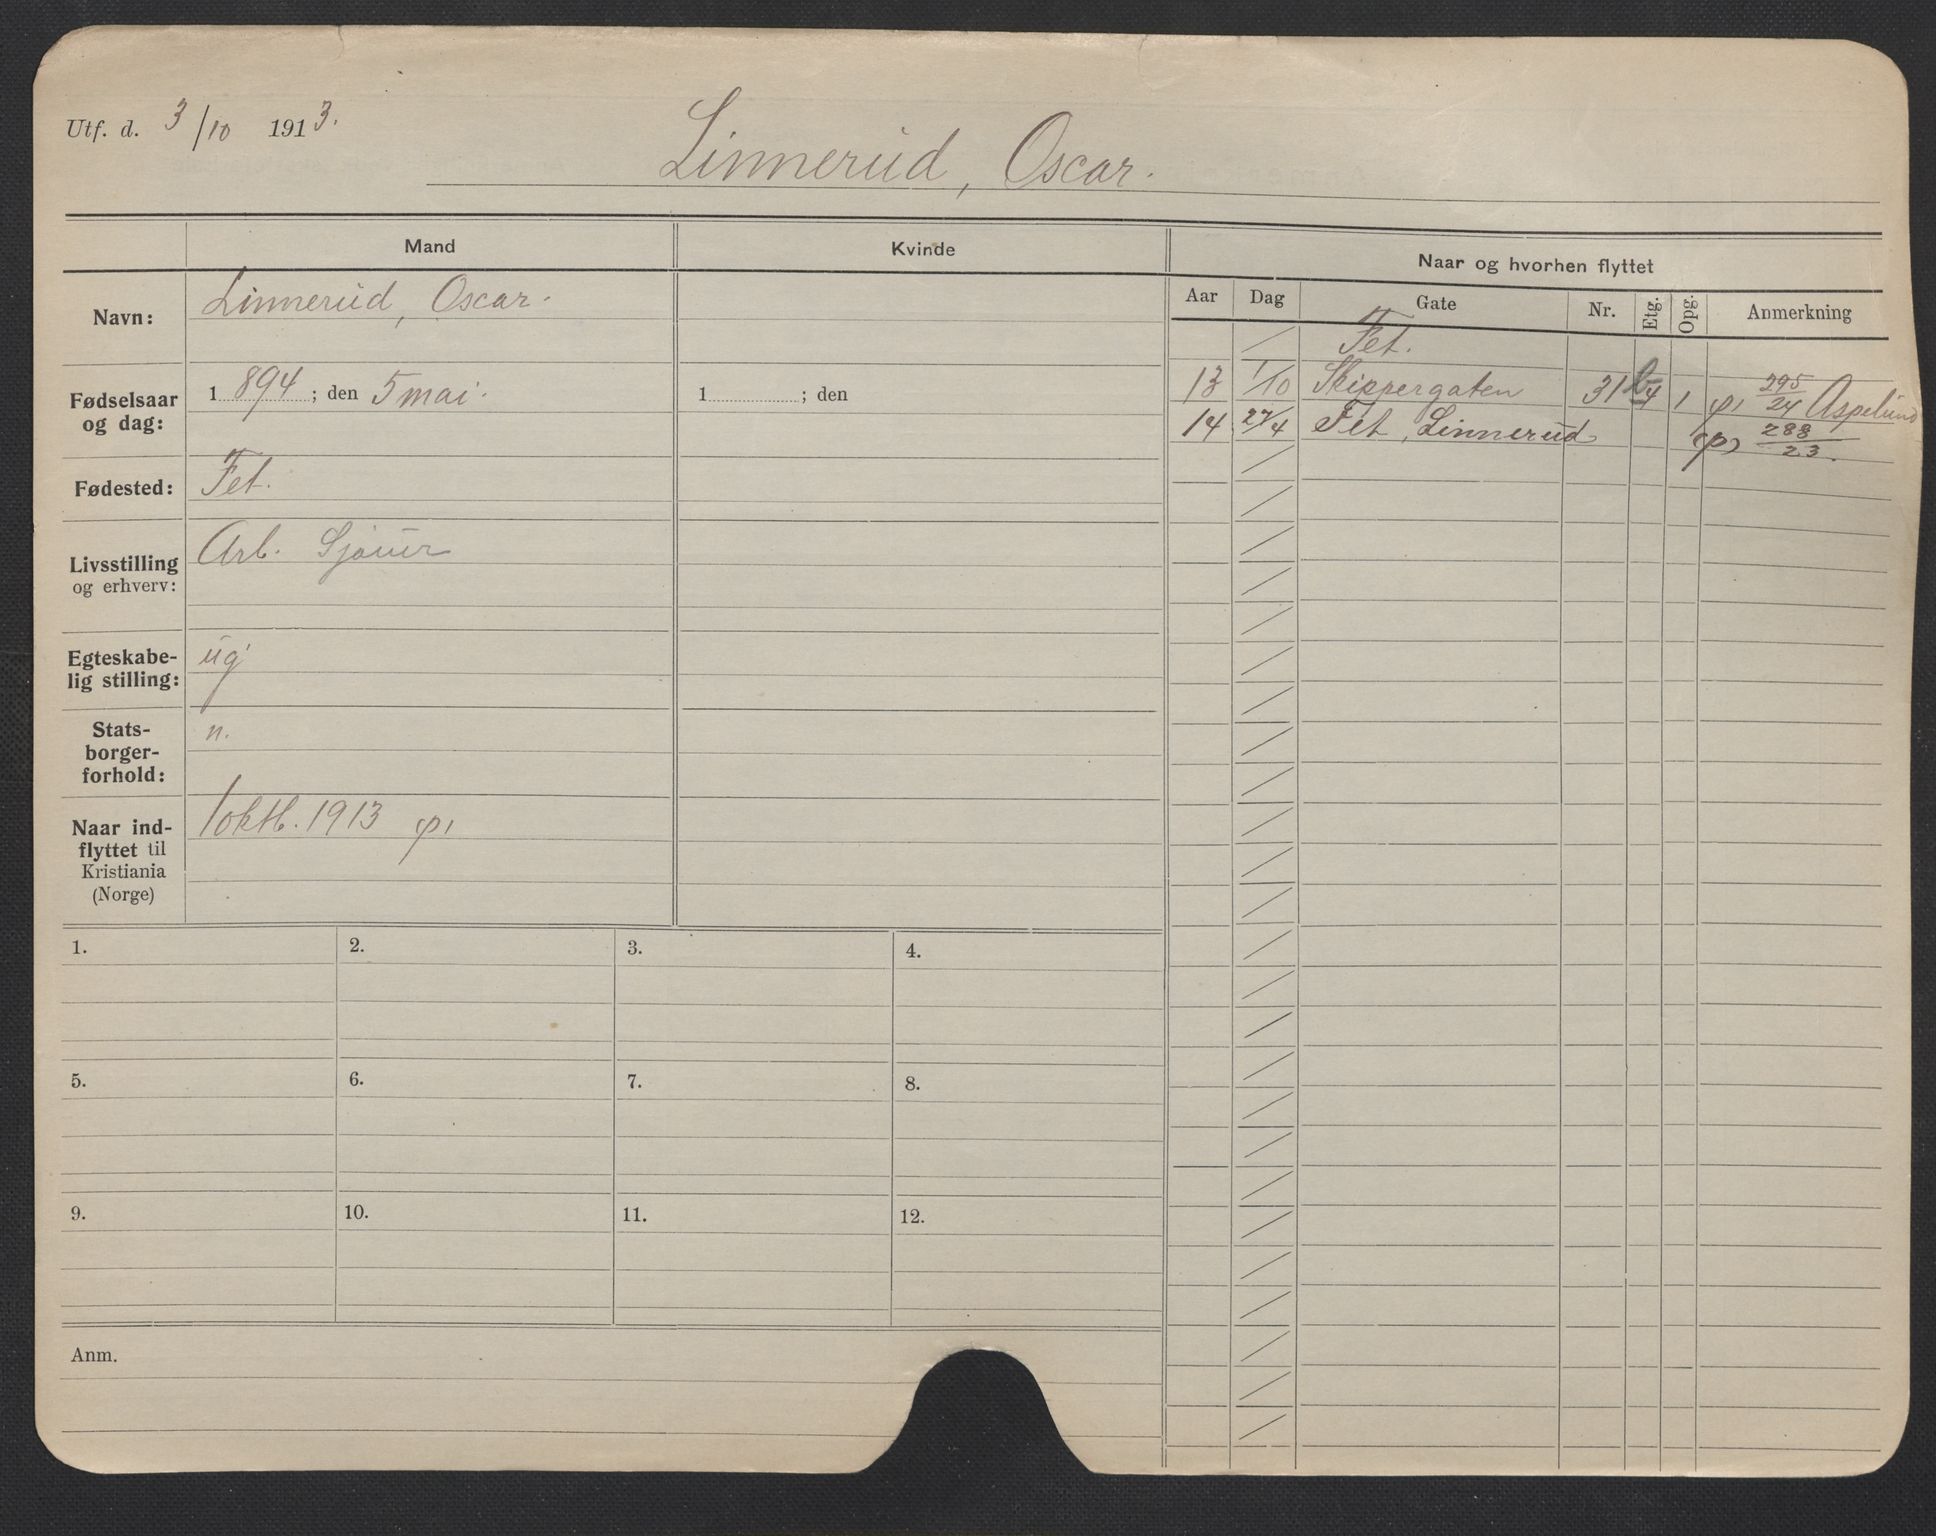 Utf. d. 3/10 1913.
Linnerud, Oscar.
Mand
Kvinde
Naar og hvorhen flyttet
Navn:
Linnerud, Oscar.
Fødselsaar og dag:
1894; den 5 mai.
1 ; den
Fødested:
Fet.
Livsstilling og erhverv:
Arb. Sjauer
Egteskabe-
lig stilling:
ug
Stats-
borger-
forhold:
n.
Naar ind-
flyttet til
Kristiania
(Norge)
1 oktb. 1913
Aar Dag Gate Nr. Etg. Opg. Anmerkning
Fet.
13 1/10 Skippergaten 31b 4 1 295/24 Aspelund
14 27/4 Fet, Linnerud 288/23.
1. 2. 3. 4.
5. 6. 7. 8.
9. 10. 11. 12.
Anm.